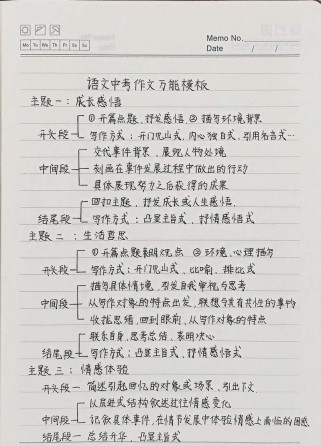 Memo No.
Mo Tu We Th Fr Sa Su
Date / /
语文中考作文万能模板
主题一：成长感悟
①开篇点题，抒发感悟 ②描写环境背景
开头段 写作方式：开门见山式，内心独白式，引用名言式…
交代事件背景，展现人物处境
中间段 刻画在事件发展过程中做出的行动
具体展现努力之后获得的成果
回扣主题，抒发成长或人生感悟
结尾段 写作方式：凸显主旨式，抒情感悟式
主题二：生活意思
①开篇点题表明观点 ②环境、心理描写
开头段 写作方式：开门见山式，比喻，排比式
描写具体情境，引发自我审视与思考
中间段 从写作对象的特点出发，联想与有共性的事物
收拢思绪，回到眼前，从写作对象的特点
联系自身，思考总结，表明决心
结尾段 写作方式：凸显主旨式，抒情感悟式
主题三：情感体验
开头段 简述引起回忆的对象或场景，引出下文
从层进式结构叙述过往情感变化
中间段 记叙具体事件，在情节发展中体验情感上面临的困惑
结尾段 总结升华，凸显主旨式